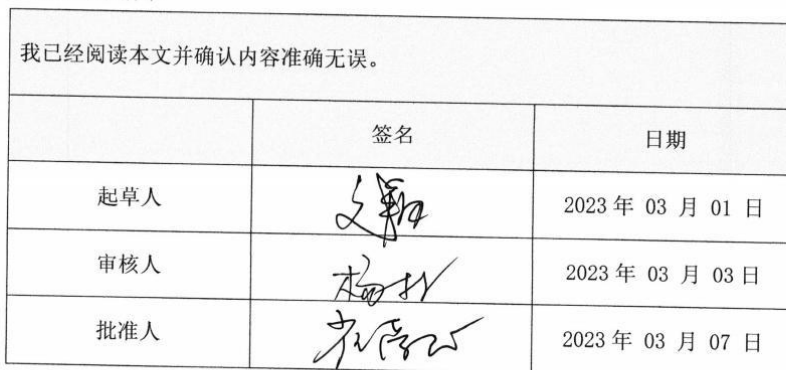 我已经阅读本文并确认内容准确无误。
签名 日期
起草人 2023年 03 月 01 日
审核人 2023年 03 月 03日
批准人 2023年 03 月 07 日